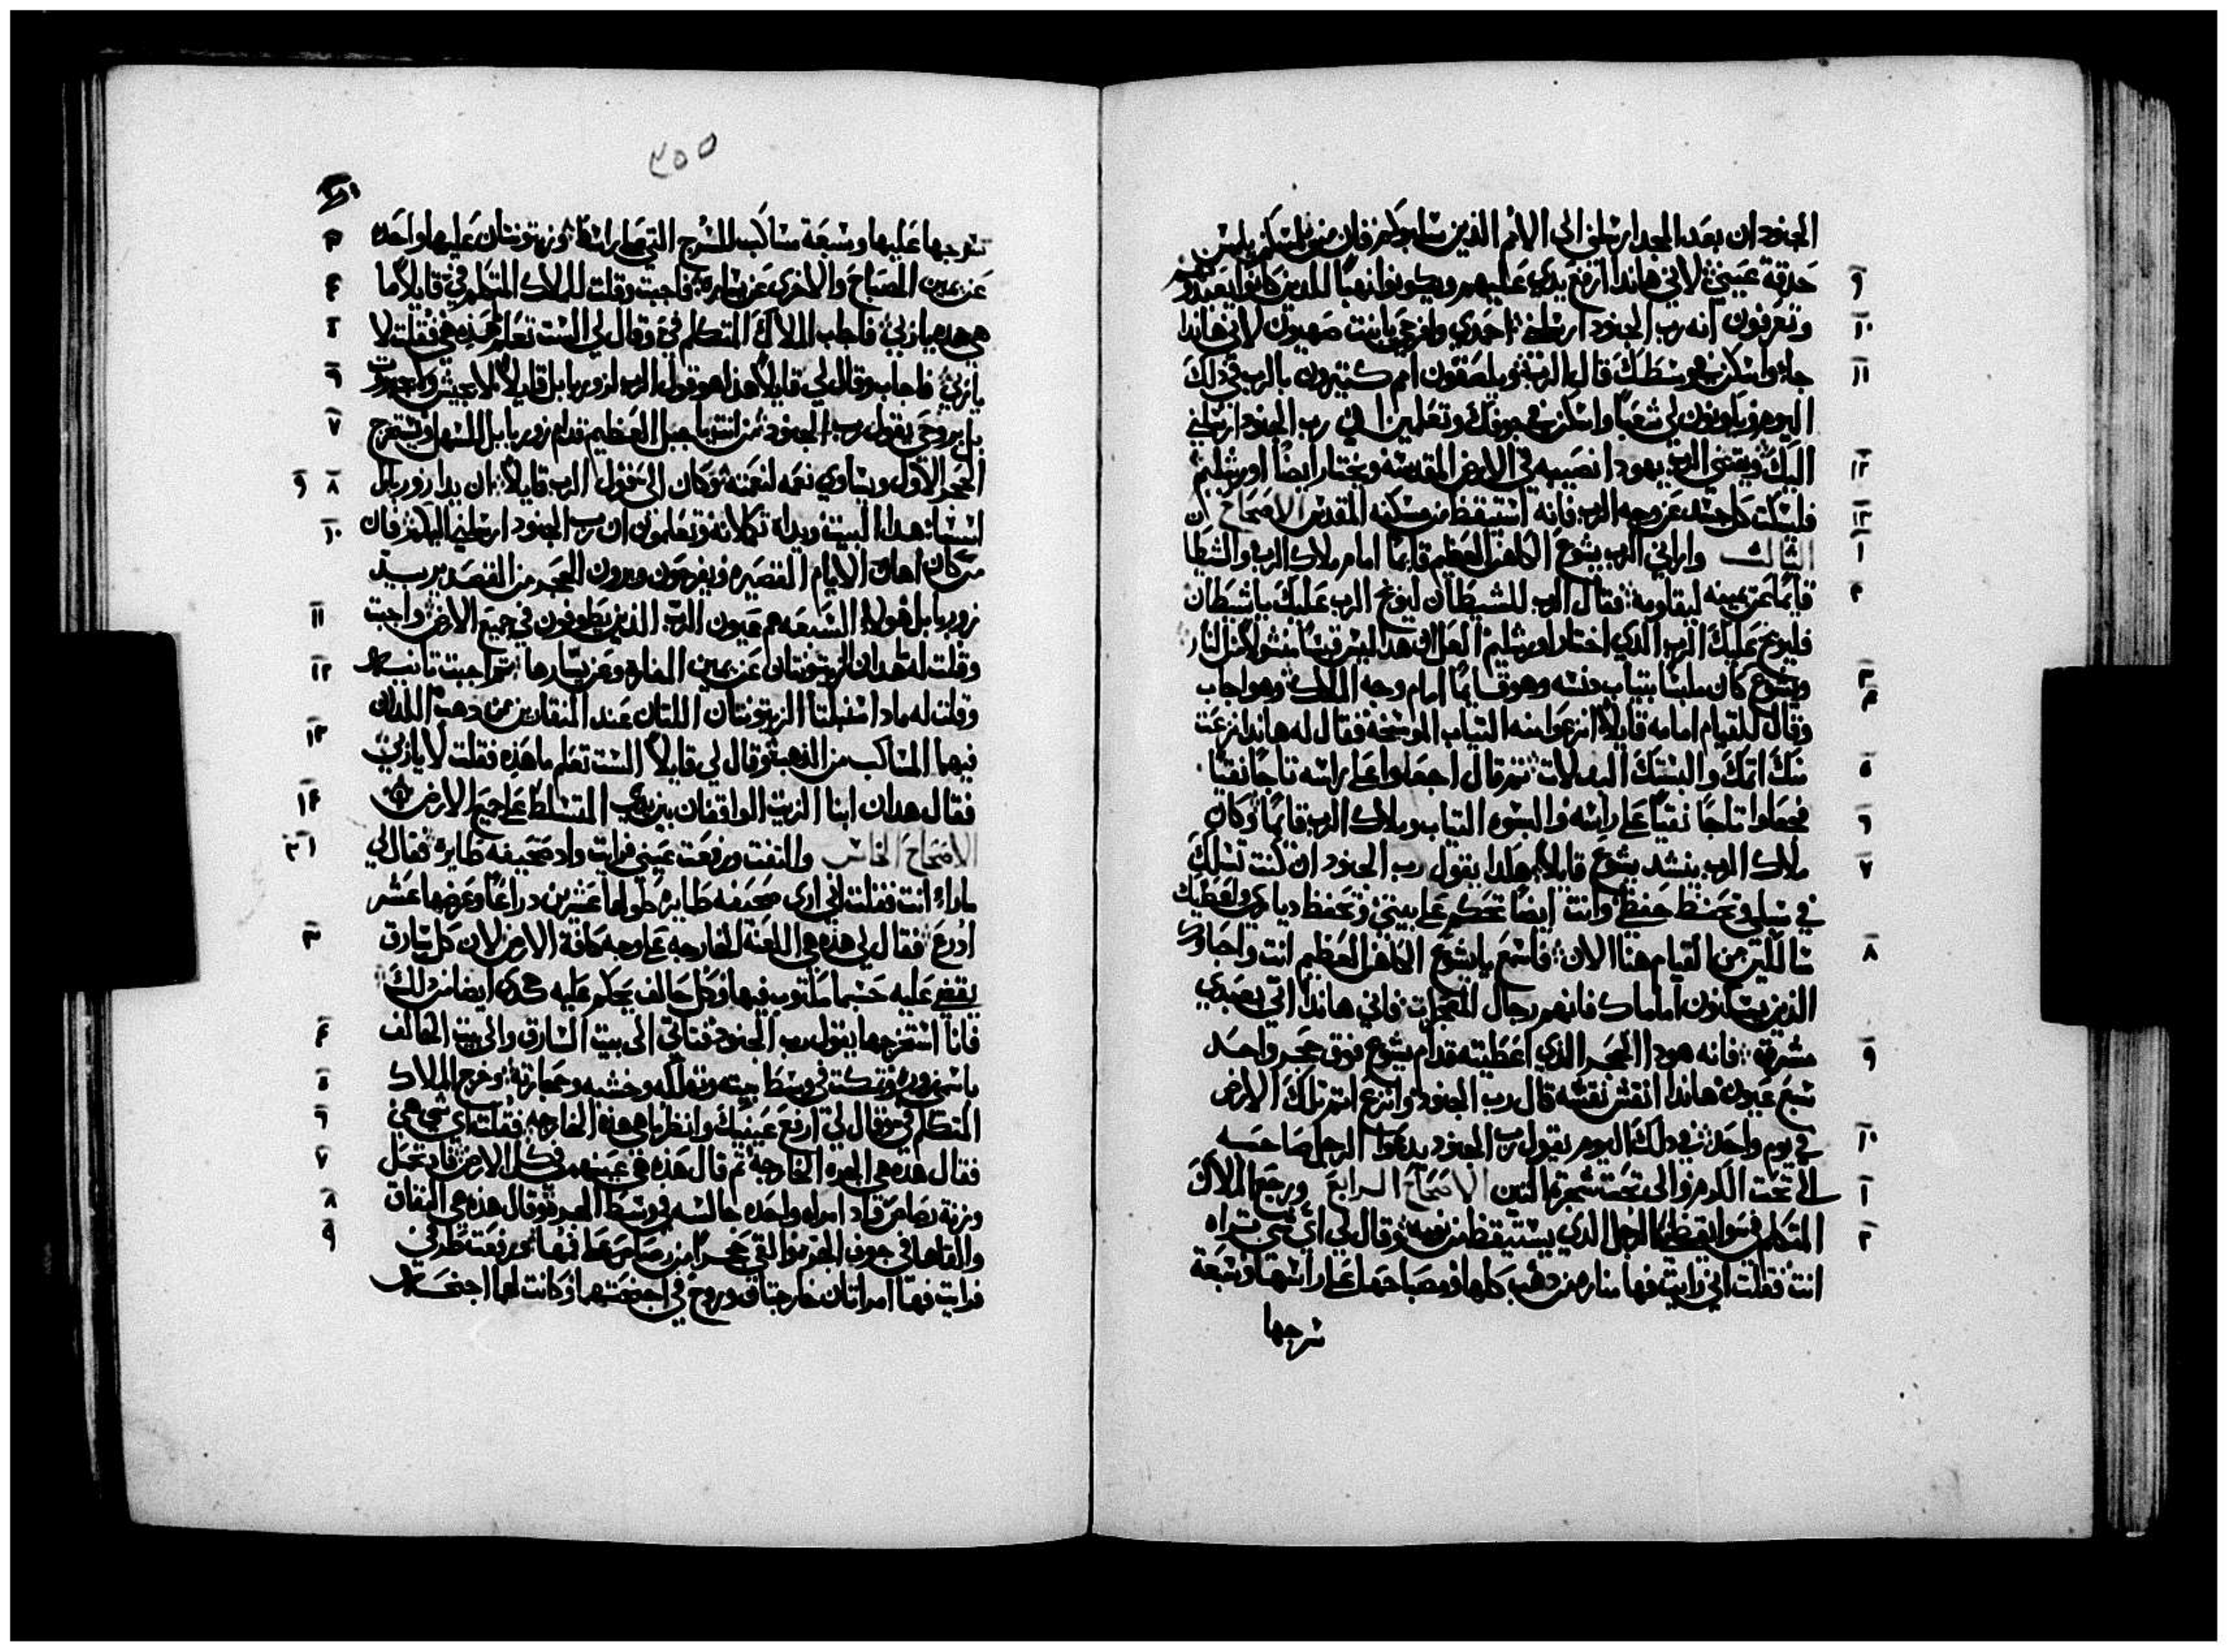 الجنود ان بعد المجد ارسلني الى الامم الذين سلبوكم فان من يمسكم يلمس
٩ حدقة عيني لاني هاندا ارفع يدي عليهم ويكونوا نهبًا للدين كانوا يعبدونهم
١٠ وتعرفون انه رب الجنود ارسلني احمدي وافرحي يابنت صهيون لاني هاندا
١١ جاي واسكن في وسطك قال الرب ويلصقون امم كتيرون بالرب في ذلك
اليوم ويكونون لي شعبًا واسكن في جوفك وتعلمين اني رب الجنود ارسلني
١٢ اليك ويقتني الرب يهودا نصيبه في الارض المقدسة ويختار ايضًا اورشليم
١٣ فليسكت كل جسد عن وجه الرب فانه استيقظ من مسكنه المقدس الاصحاح
١ التالت واراني الرب يشوع الكاهن العظيم قايمًا امام ملاك الرب والشيطان
٢ قايمًا عن يمينه ليقاومه فقال الرب للشيطان ليوبخ الرب عليك ياشيطان
فليوبخ عليك الرب الدي اختار اورشليم العل هدا ليس قبسًا منشولًا من النار
٣ ويشوع كان ملبسًا بتياب دنسه وهو قايمًا امام وجه الملاك وهو اجاب
٤ وقال للقيام امامه قايلًا انزعوا منه التياب الوسخة فقال له هاندا نزعت
٥ منك اتمك والبستك البدلات تم قال اجعلوا على راسه تاجًا نقيًا
٦ فجعلوا تاجًا نقيًا على راسه والبسوه التياب وملاك الرب قايمًا وكان
٧ ملاك الرب ينشد يشوع قايلًا هكدا يقول رب الجنود ان كنت تسلك
في سبلي وتحفظ حفظي وانت ايضًا تحكم على بيتي وتحفظ دياري واعطيك
٨ سالكين من القيام هنا الان فاسمع يايشوع الكاهن العظيم انت واصحابك
الذين يسكنون امامك فانهم رجال المعجزات فاني هاندا اتي بعبدي
٩ مشرقه فانه هودا الحجر الذي اعطيته قدام يشوع فوق حجر واحد
سبع عيون هاندا انقش نقشه قال رب الجنود وانزع اتم تلك الارض
١٠ في يوم واحد في دلك اليوم يقول رب الجنود يدعوا الرجل صاحبه
١ الى تحت الكرم والى تحت شجرة التين الاصحاح الرابع ورجع الملاك
٢ المتكلم في وايقظني كالرجل الدي يستيقظ من نومه وقال لي اي شي تراه
انت فقلت اني رايت فها مناره من دهب كلها ومصباحها على راسها وسبعة
سرجها
٢٥٥
سرجها عليها وسبعة مساكب للسرج التي على راسها
٣ وزيتونتان عليها واحده
٤ عن يمين المصباح والاخرى عن يساره فاجبت وقلت للملاك المتكلم في قايلًا ما
٥ هي هده ياربي فاجاب الملاك المتكلم في وقال لي الست تعلم ما هذه هي فقلت لا
٦ ياربي فاجاب وقال لي قايلًا هذا هو قول الرب لزوربابل قايلًا لا بجيش ولا بجبروت
٧ بل بروحي يقول رب الجنود من انت ياجبل العظيم قدام زوربابل للسهل ويستخرج
٨ ٩ الحجر الاول ويساوي نعمه لنعمته وكان الي قول الرب قايلًا ان يدا زوربابل
١٠ اسسا هدا البيت ويداه تكملانه وتعلمون ان رب الجنود ارسلني اليكم فان
من كان اهان الايام القصيره ويفرحون ويرون الحجر من القصدير بيد
١١ زوربابل هولاء السبعه هم عيون الرب الذين يطوفون في جميع الارض واجبت
١٢ وقلت له ما هدان الزيتونتان عن يمين المناره وعن يسارها تم اجبت تانيه
وقلت له مادا سنبلتا الزيتونتان اللتان عند المنقارين من دهب اللدان
١٣ فيهما المساكب من الذهب وقال لي قايلًا الست تعلم ما هذه فقلت لا ياربي
١٤ فقال هدان ابنا الزيت الواقفان بين يدي المتسلط على جميع الارض
١ ٢ الاصحاح الخامس والتفت ورفعت عيني فرايت واد صحيفه طايره فقال لي
مادا انت فقلت اني ارى صحيفه طايره طولها عشرين دراعًا وعرضها عشر
٣ ادرع فقال لي هذه هي اللعنة الخارجه على وجه كافة الارض لان كل سارق
يقضي عليه حسبما مكتوب فيها وكل حالف يحكم عليه هكدى ايضا من دلك
٤ فانا استخرجها يقول رب الجنود فتاتي الى بيت السارق والى بيت الحالف
٥ باسمي زورًا وتمكت في وسط بيته وتهلكه وخشبه وحجارته وخرج الملاك
٦ المتكلم في وقال لي ارفع عينيك وانظر ما هي هذه الخارجه فقلت اي شي هي
٧ فقال هذه هي الجره الخارجة تم قال هذه هي عينهم في كل الارض فاد تحمل
٨ وزنة رصاص واد امراه واحده جالسه في وسط الجره وقال هذه هي النفاق
٩ والقاها في جوف الجره والقى حجرًا من رصاص على فمها تم رفعت طرفي
فرايت فها امراتان خارجتان وروح في اجنحتهما وكانت لهما اجنحه